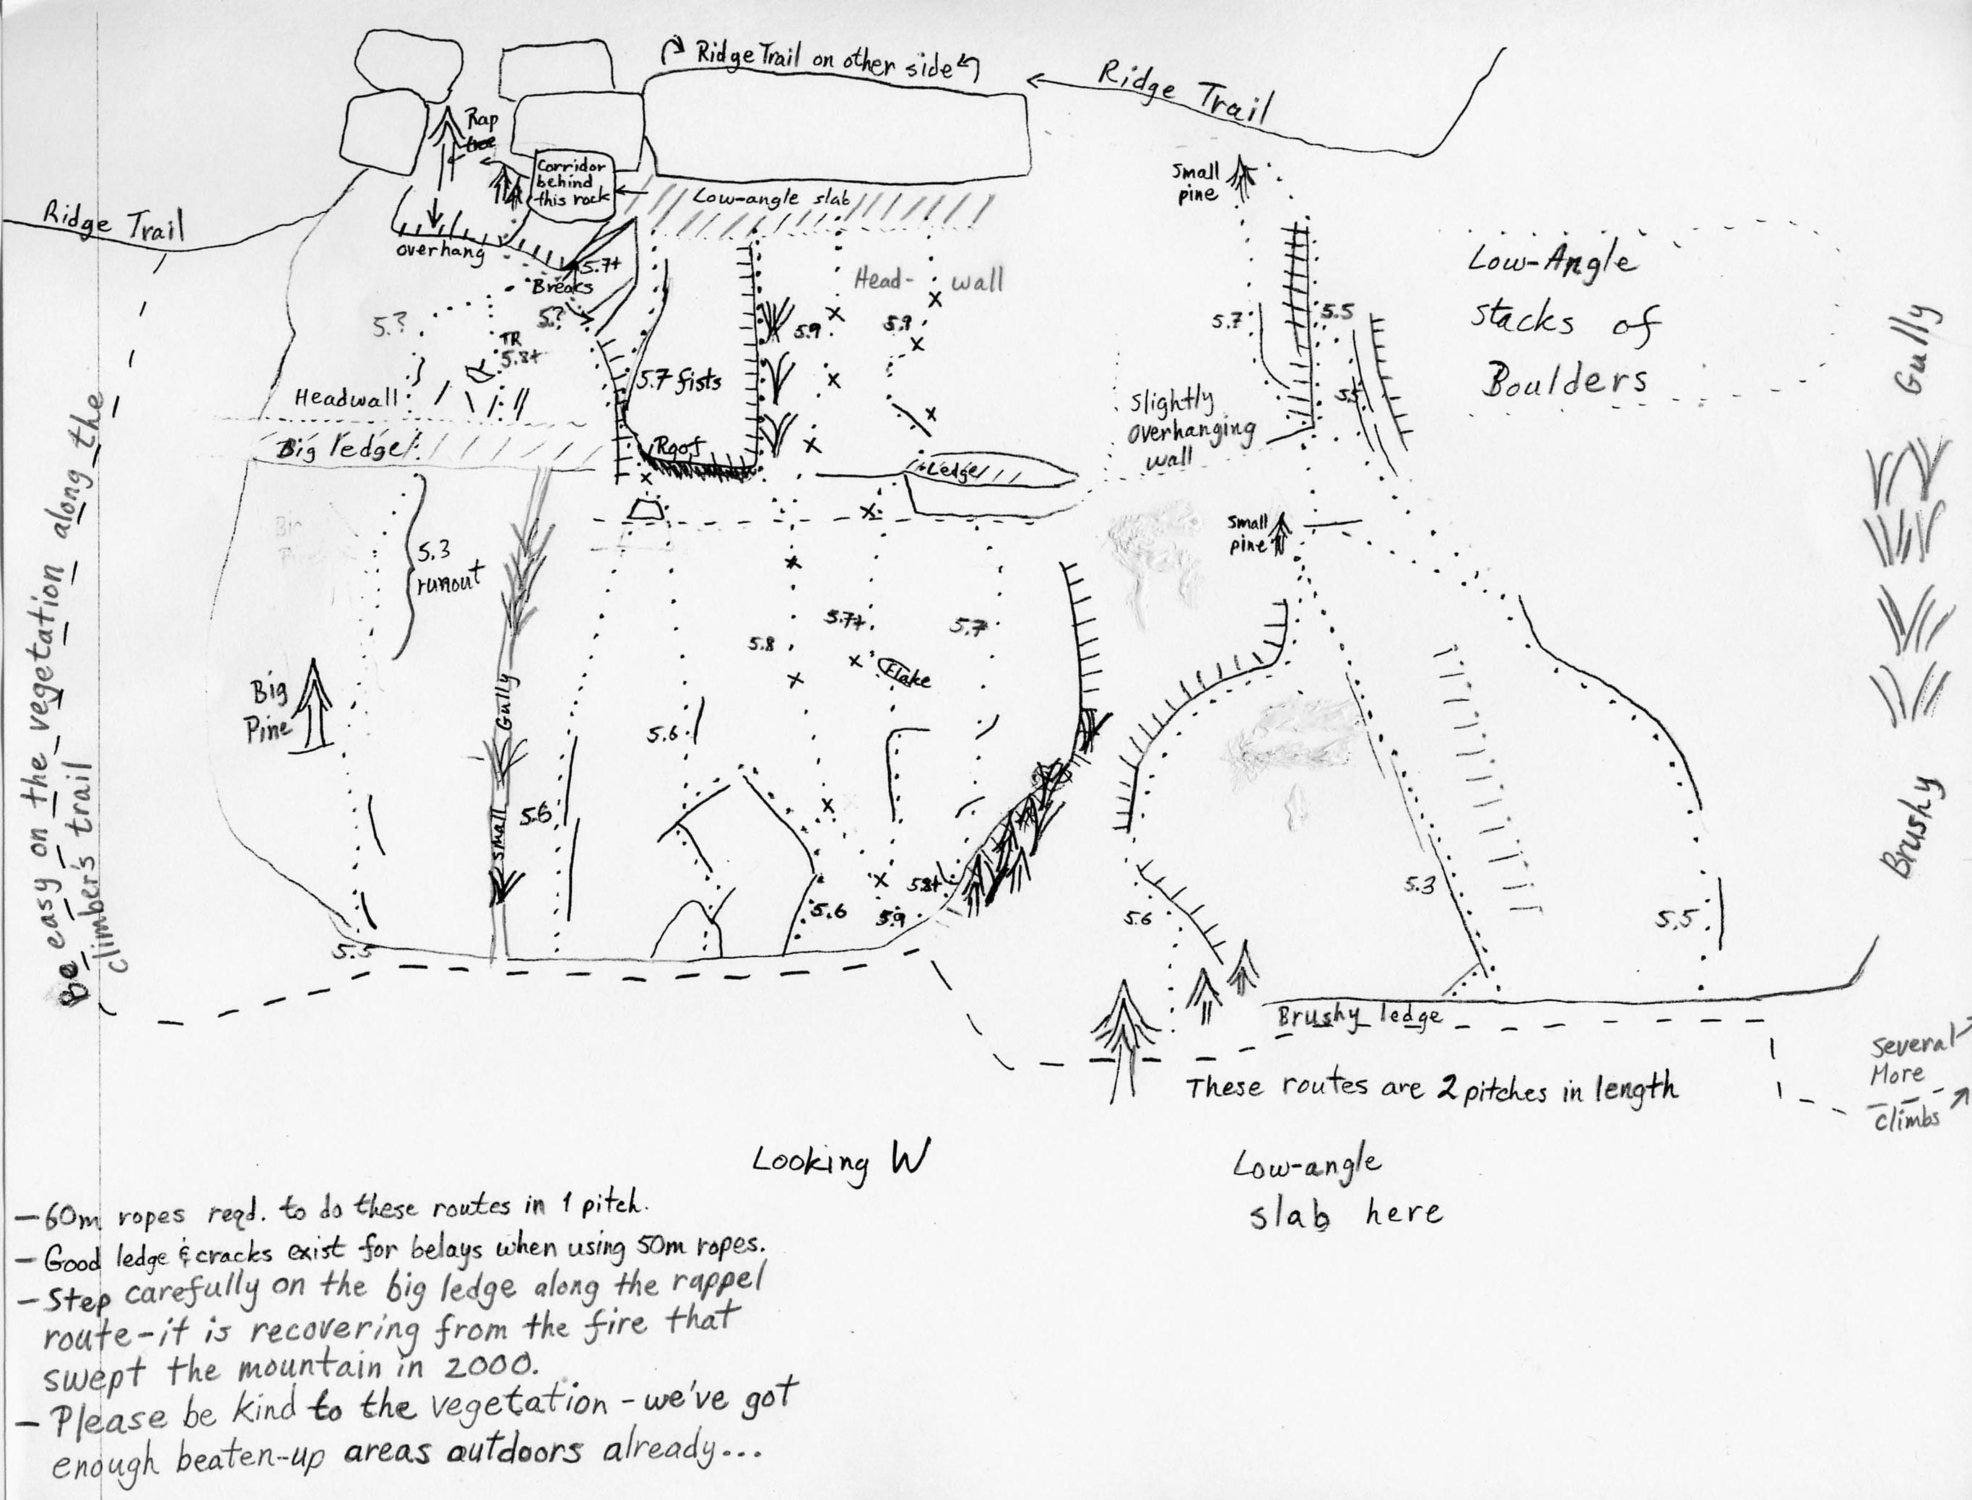 Ridge Trail on other side
Ridge Trail
Rap
tree
Corridor
behind
this rock
Low-angle slab
Small
pine
Ridge Trail
overhang
5.7+
Breaks
Head- wall
Low-Angle
stacks of
Boulders
Gully
5.?
5.?
TR
5.8+
5.9
5.9
5.7
5.5
Headwall
5.7 fists
5.5
Slightly
overhanging
wall
Big ledge
Roof
Ledge
5.3
runout
Small
pine
5.8
5.7+
5.7
Flake
Big
Pine
Small Gully
5.6
5.6
Brushy
5.8+
5.6
5.9
5.6
5.3
5.5
5.5
Be easy on the vegetation along the
climber's trail
Brushy ledge
Several
More
Climbs
These routes are 2 pitches in length
Looking W
Low-angle
slab here
- 60m ropes reqd. to do these routes in 1 pitch.
- Good ledge & cracks exist for belays when using 50m ropes.
- Step carefully on the big ledge along the rappel
route - it is recovering from the fire that
swept the mountain in 2000.
- Please be kind to the vegetation - we've got
enough beaten-up areas outdoors already...